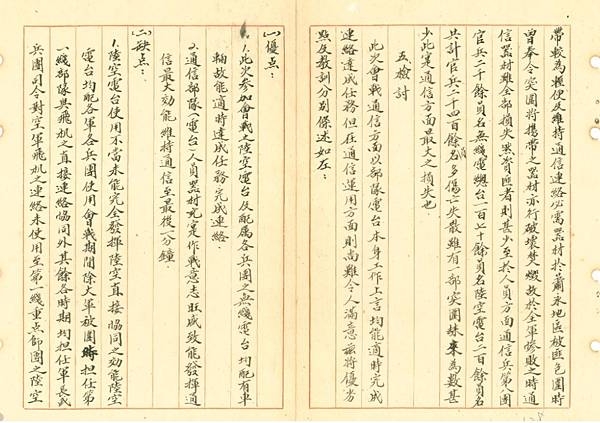 帶較為機便及維持通信連絡必需器材於蕭永地區被匪包圍時
曾奉令突圍將携帶之器材亦行破壞焚燬故於全軍慘敗之時通
信器材雖全部損失資匪者則甚少至於人員方面通信兵第八團
官兵二千餘員名無綫電總台一百七十餘員名陸空電台二百餘員名
共計官兵二千四百餘名多傷亡失散雖有一部突圍歸來為數甚
少此寔通信方面最大之損失也
五、檢討
此次會戰通信方面以部隊電台本身工作上言均能適時完成
連絡達成任務但在通信運用方面則尚難令人滿意茲將優劣
點及教訓分別條述如左：
㈠優点：
1.此次參加會戰之陸空電台及配属各兵團之無綫電台均配有車
輛故能適時達成任務完成連絡.
2.通信部隊(電台)人員器材充寔作戰意志旺盛致能發揮通
信最大効能維持通信至最後一分鐘.
㈡缺点：
1.陸空電台使用不當未能完全發揮陸空直接協同之効能陸空
電台均配各軍各兵團使用會戰期間除大軍被圍時担任第
一綫部隊與飛机之直接連絡協同外其餘各時期均担任軍長或
兵團司令對空軍飛机之連絡未使用至第一綫重点部團之陸空